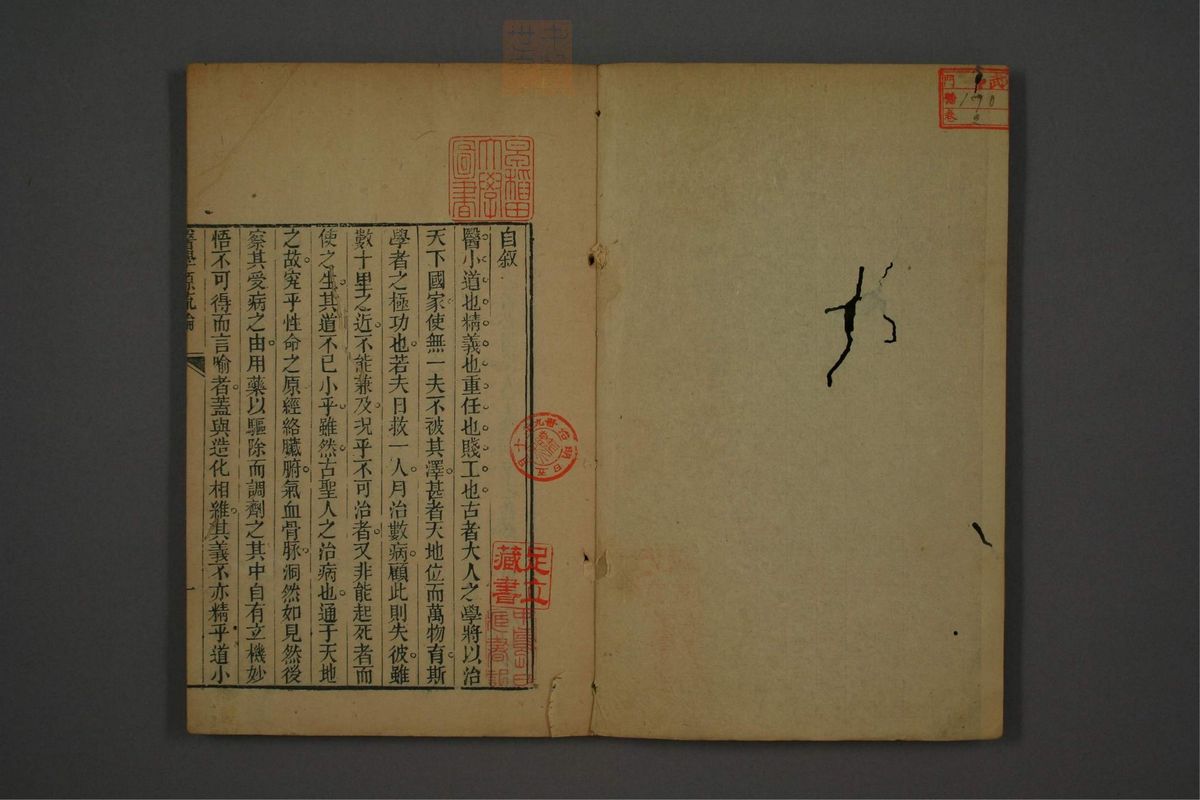 自叙
醫小道也精義也重任也賤工也古者大人之學將以治
天下國家使無一夫不被其澤甚者天地位而萬物育斯
學者之極功也若夫日救一人月治數病顧此則失彼雖
數十里之近不能兼及況乎不可治者又非能起死者而
使之生其道不已小乎雖然古聖人之治病也通于天地
之故究乎性命之原經絡臟腑氣血骨脉洞然如見然後
察其受病之由用藥以驅除而調劑之其中自有立機妙
悟不可得而言喻者蓋與造化相維其義不亦精乎道小
醫學源流論
一
早稻田
大學
圖書
足立
藏書
門
號
卷
190